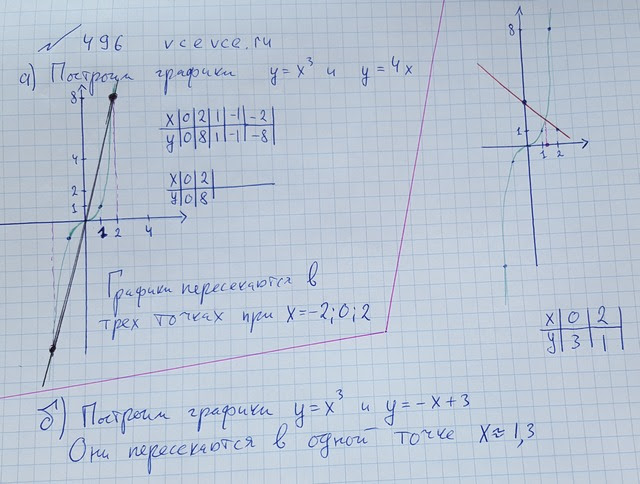 √ 496 vcevce.ru
а) Построим графики y=x³ и y=4x
8
4
2
1
1 2 4
x 0 2 1 -1 -2
y 0 8 1 -1 -8
x 0 2
y 0 8
Графики пересекаются в
трех точках при x=-2;0;2
8
1
1 2
x 0 2
y 3 1
б) Построим графики y=x³ и y=-x+3
Они пересекаются в одной точке x≈1,3